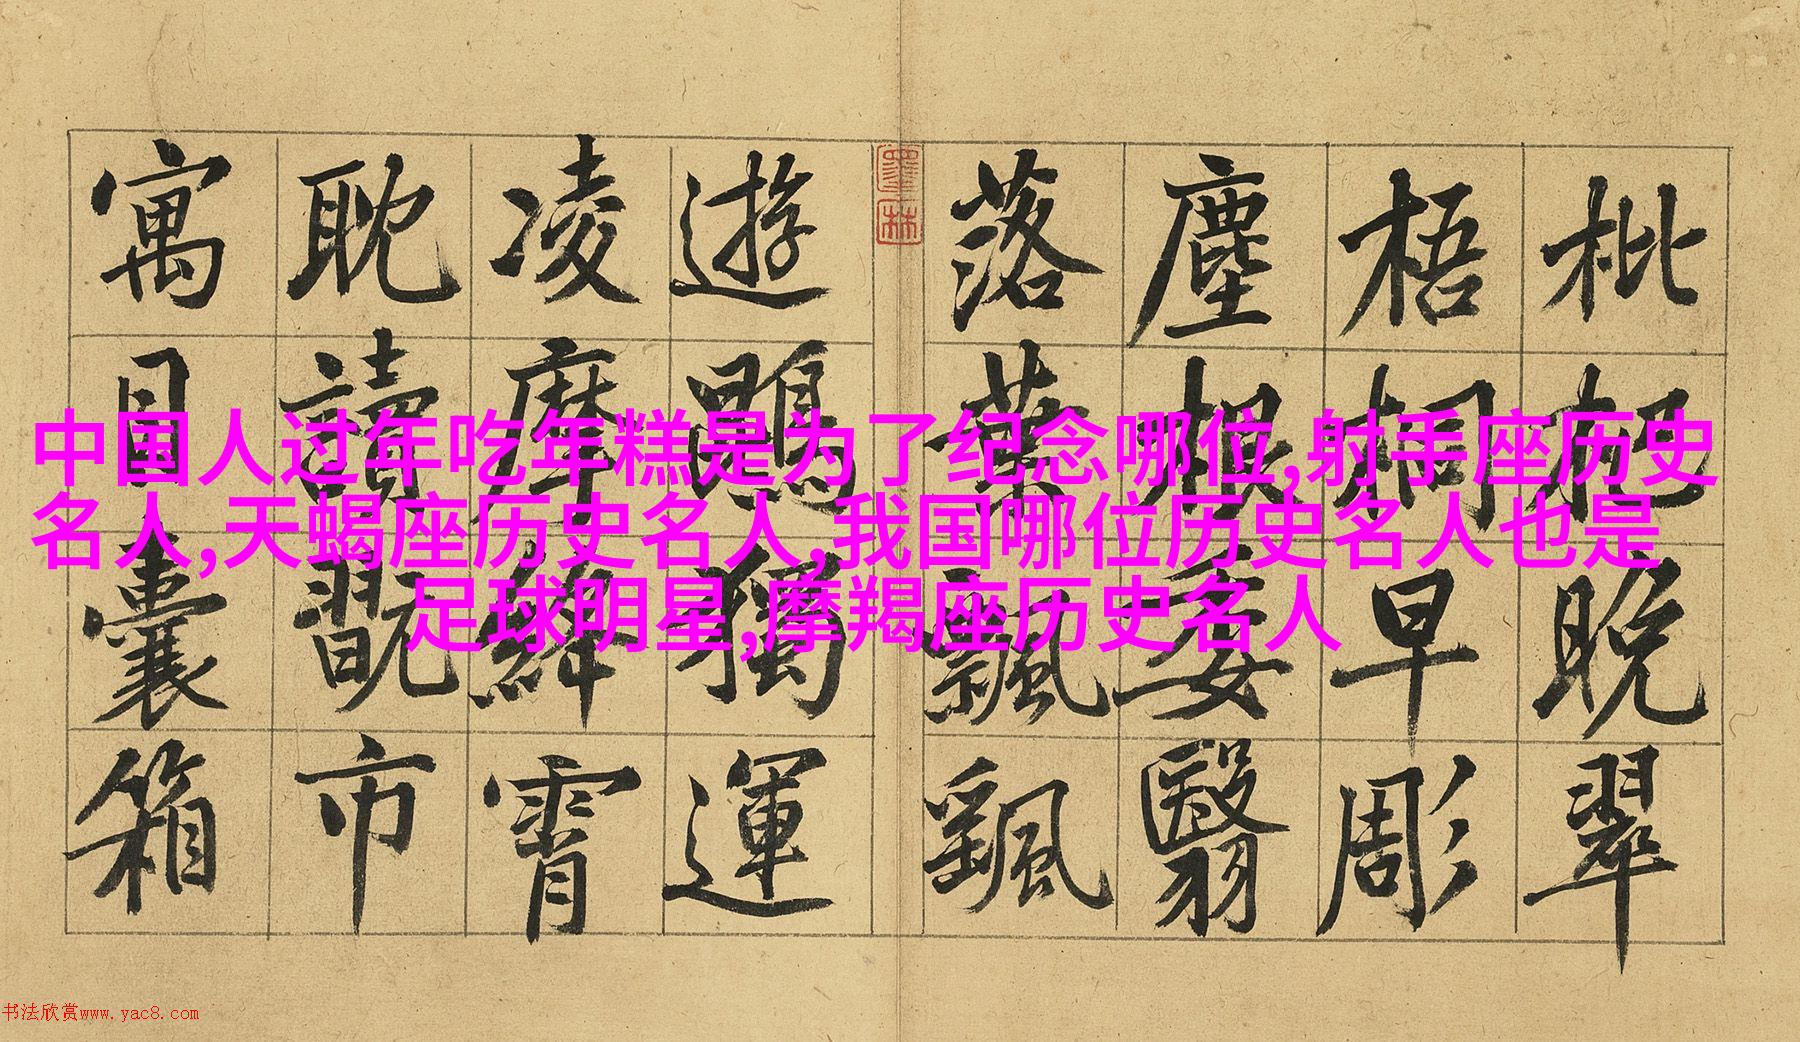 枇杷晚翠
梧桐早彫
塵根委翳
落葉飄飖
遊鵾獨運
凌摩絳霄
耽讀翫市
寓目囊箱
中国人过年吃年糕是为了纪念哪位,射手座历史
名人,天蝎座历史名人,我国哪位历史名人也是
足球明星,摩羯座历史名人
书法欣赏www.yac8.com